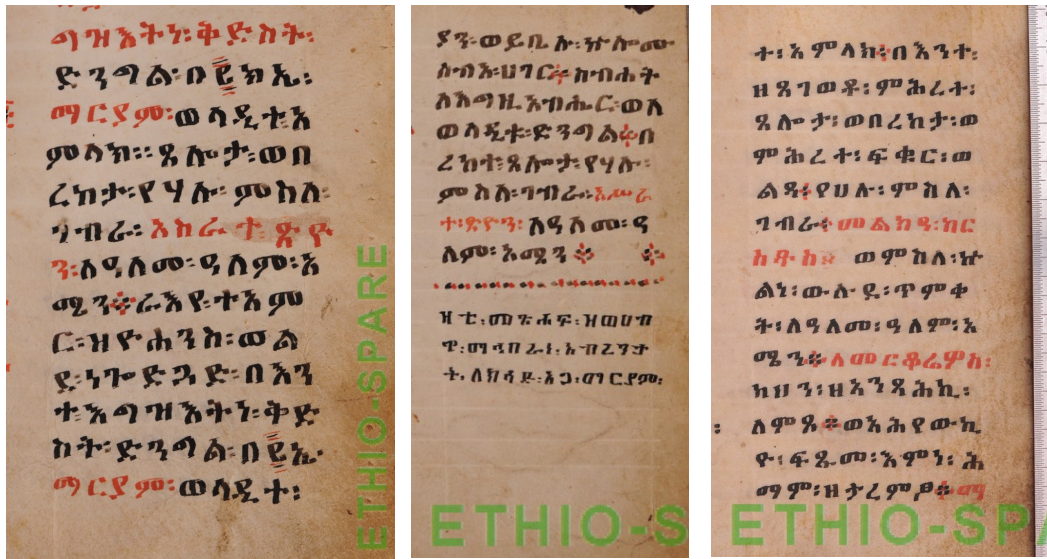 ግዝእትነ፡ቅድስት፡
ድንግል፡በ፪ክኤ፡
ማርያም፡ወላዲተ፡አ
ምላክ፡፡ጸሎታ፡ወበ
ረከታ፡የሃሉ፡ምስለ፡
ገብራ፡አስራተ፡ጽዮ
ን፡ለዓለመ፡ዓለም፡አ
ሜን፨ራእየ፡ተአም
ር፡ዝዮሐንስ፡ወል
ደ፡ነጐድጓድ፡በእን
ተ፡እግዝእትነ፡ቅድ
ስት፡ድንግል፡በ፪ኤ
ማርያም፡ወላዲተ፡
ያን፡ወይቤሉ፡ኵሎሙ
ሰብአ፡ሀገር፨ስብሐት
ለእግዚአብሔር፡ወለ
ወላዲቱ፡ድንግል፨በ
ረከተ፡ጸሎታ፡የሃሉ፡
ምስለ፡ገብራ፡አሥራ
ተ፡ጽዮን፡ለዓለመ፡ዓ
ለም፡አሜን፨
ዛቲ፡መጽሐፍ፡ዝወሀብ
ማርያም፡
ተ፡አምላክ፨በእንተ፡
ዘጸገወቶ፡ምሕረተ፡
ጸሎታ፡ወበረከታ፡ወ
ምሕረተ፡ፍቁር፡ወ
ልዳ፨የሀሉ፡ምስለ፡
ገብራ፨መልከዳ፡ክር
ወምስለ፡ኵ
ልነ፡ውሉደ፡ጥምቀ
ት፡ለዓለመ፡ዓለም፡አ
ሜን፨ለመርቆሬዎስ፡
ካህን፡ዘአንጻሕኪ፡
ለምጸ፨ወአሕየውኪ
ዮ፡ፍጹመ፡እምነ፡ሕ
ማም፡ዘታረምሞ፨ማ
ETHIO-SPARE
ETHIO-S
ETHIO-SPA